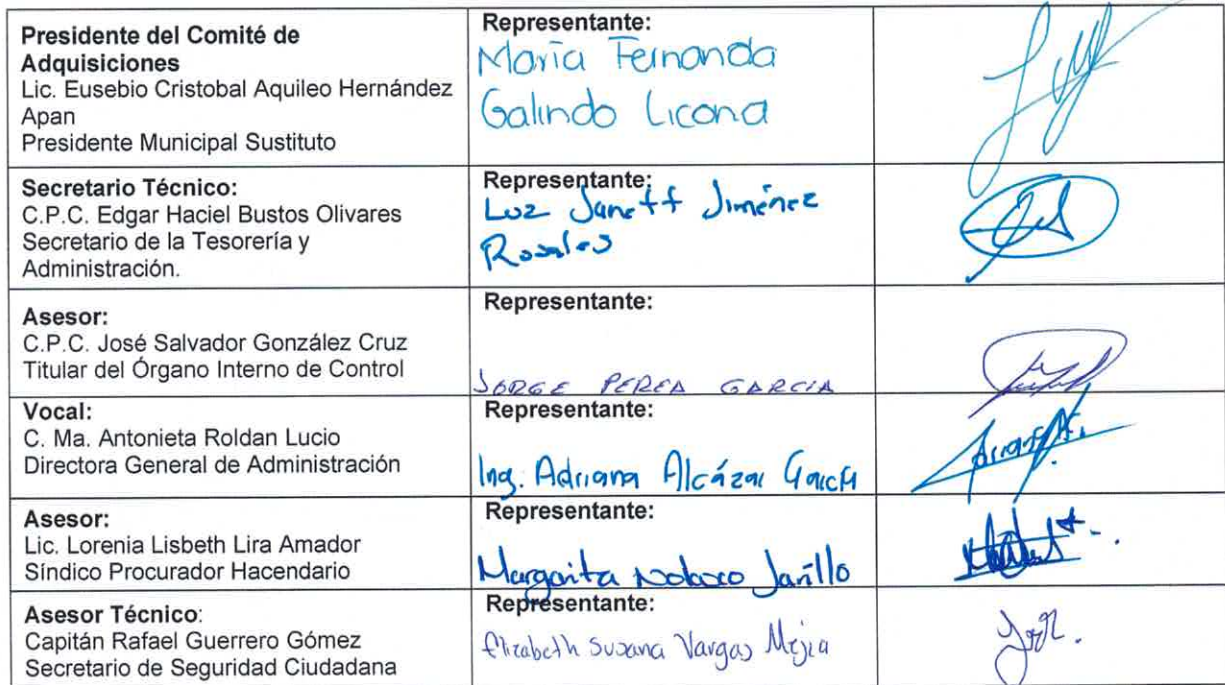 Presidente del Comité de
Adquisiciones
Lic. Eusebio Cristobal Aquileo Hernández
Apan
Presidente Municipal Sustituto
Representante:
María Fernanda
Galindo Licona
Secretario Técnico:
C.P.C. Edgar Haciel Bustos Olivares
Secretario de la Tesorería y
Administración.
Representante:
Luz Janett Jiménez
Rosales
Asesor:
C.P.C. José Salvador González Cruz
Titular del Órgano Interno de Control
Representante:
JORGE PEREA GARCIA
Vocal:
C. Ma. Antonieta Roldan Lucio
Directora General de Administración
Representante:
Ing. Adriana Alcázar García
Asesor:
Lic. Lorenia Lisbeth Lira Amador
Síndico Procurador Hacendario
Representante:
Margarita Nolasco Jarillo
Asesor Técnico:
Capitán Rafael Guerrero Gómez
Secretario de Seguridad Ciudadana
Representante:
Elizabeth Susana Vargas Mejia